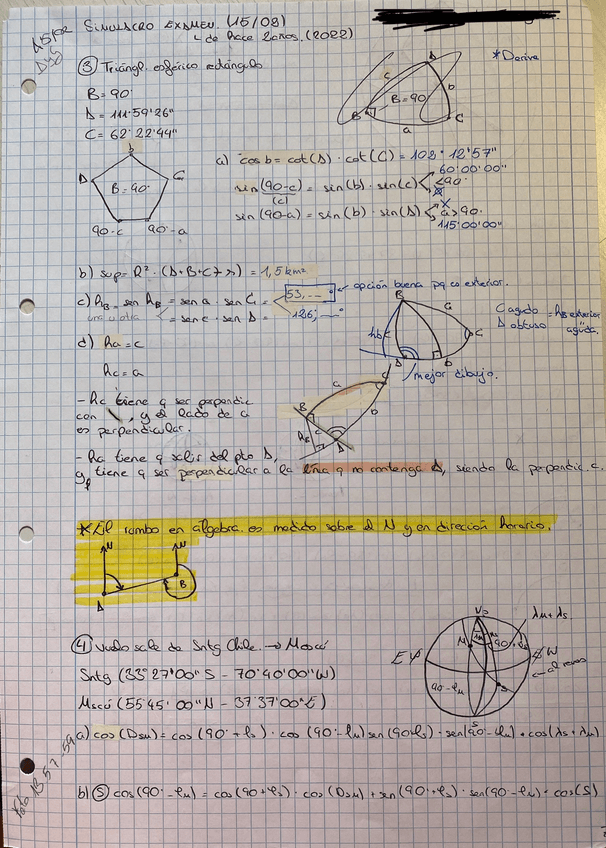 SIMULACRO EXAMEN. (15/09)
↳ de hace 2 años. (2022)
③ Triángl. esférico rectángulo
* Deriva
B = 90°
A = 111°59'26"
C = 62°22'44"
c A b
B B = 90 C
a
b
A C
B = 90°
90-c 90-a
a) cos b = cot(A) · cot(C) = 102° 12' 57"
sin(90-c) = sin(b) · sin(c) < 60°00'00"
(c) <90°
sin(90-a) = sin(b) · sin(A) < a>90°
115°00'00"
b) sup = R² · (A+B+C+π) = 1,5 km²
c) hB = sen hB = sen a · sen C = 53,...° ← opción buena pq es exterior.
una u otra = sen c · sen A = 126,...°
B a C
hb A b
C agudo = hB exterior
A obtuso aguda.
mejor dibujo.
d) ha = c
hc = a
- hc tiene q ser perpendic
con , y el lado de a
es perpendicular.
a C
B b
hB c A
- ha tiene q salir del pto A,
y tiene q ser perpendicular a la línea q no contenga A, siendo la perpendic. c.
* El rumbo en álgebra es medido sobre el N y en dirección horario.
N N
A B
④ vuelo sale de Sntg Chile. → Moscú
Sntg (33°27'00" S - 70°40'00" W)
Mscú (55°45'00" N - 37°37'00" E)
λM + λS
E W
← al revés
90 - φM
M S
a) cos(DSM) = cos(90°+φS) · cos(90°-φM) sen(90+φS) · sen(90-φM) · cos(λS+λM)
b) Ⓢ cos(90°-φM) = cos(90+φS) · cos(DSM) + sen(90°+φS) · sen(90-φM) · cos(S)